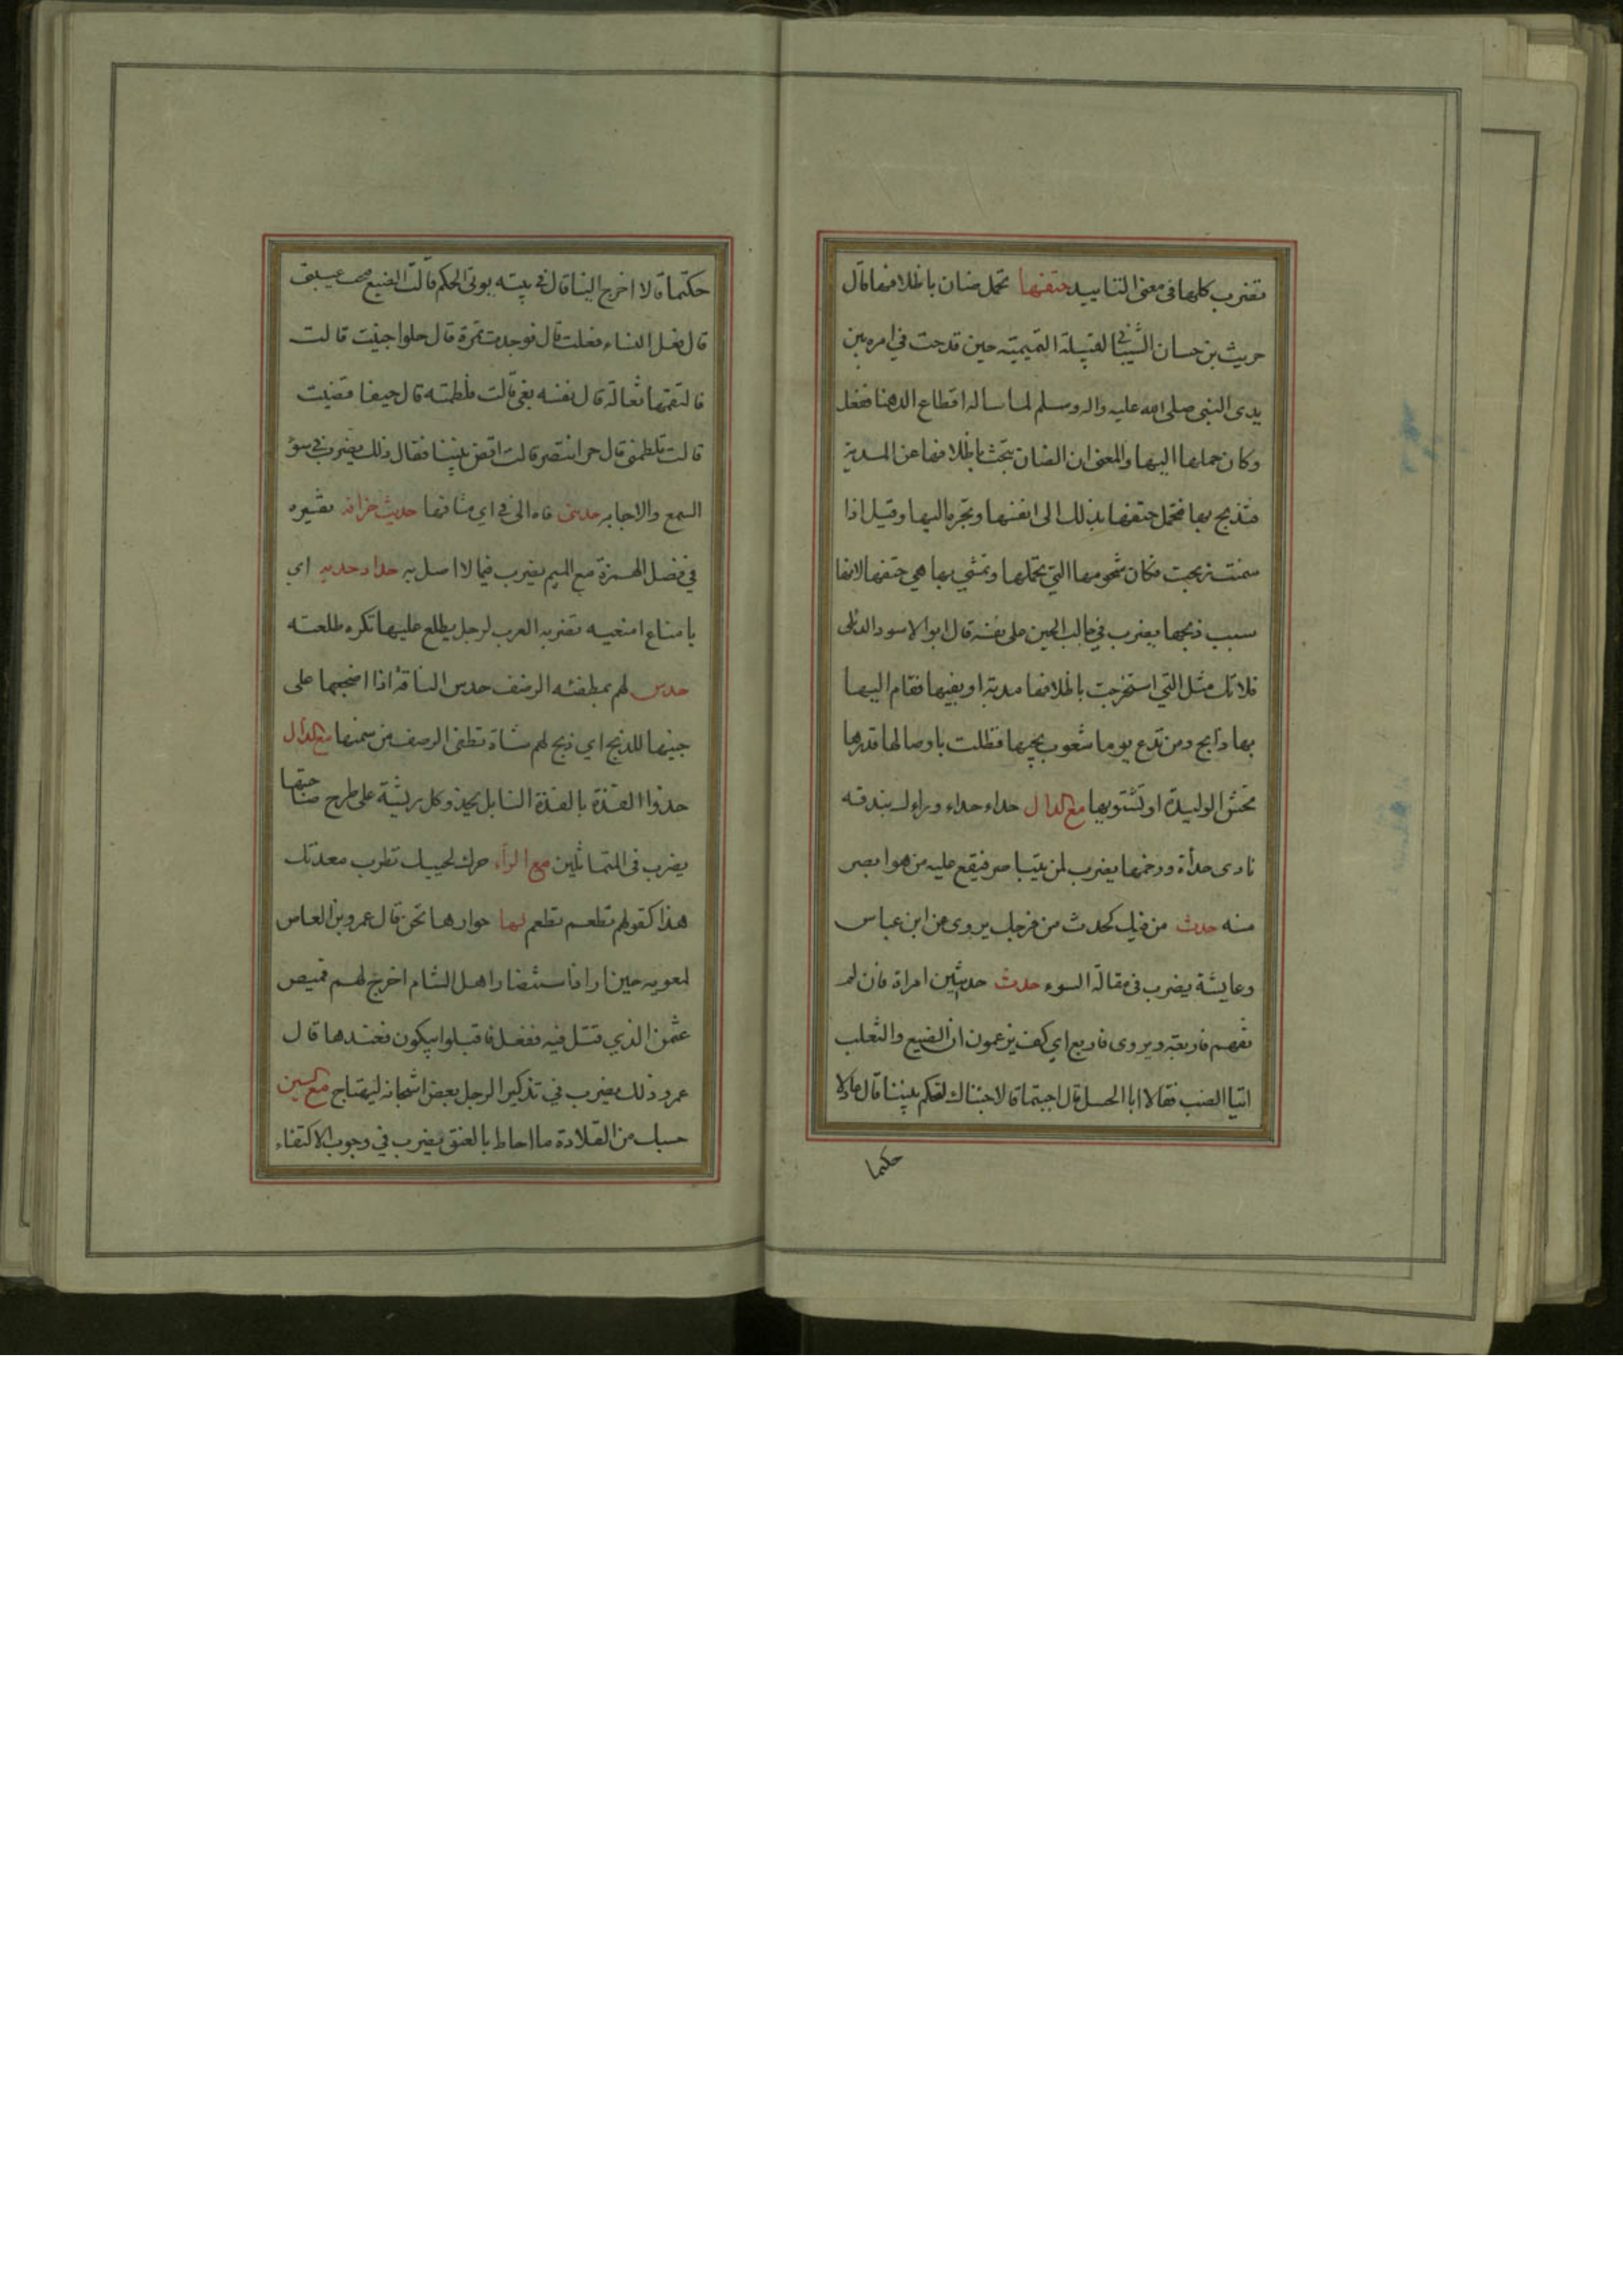 تضرب كلها فى معنى التابيد حتفها تحمل ضان باظلافها قال
حريث بن حسان الشيبانى لقيلة التميمية حين قدحت في امره بين
يدى النبى صلى الله عليه واله وسلم لما ساله اقطاع الدهنا ففعل
وكان حملها اليها والمعنى ان الضان تبحث باظلافها عن المدية
فتذبح بها فتحمل حتفها بذلك الى انفسها وتجره اليها وقيل اذا
سمنت ذبحت فكان شحومها التى تحملها وتمشي بها هي حتفها لانها
سبب ذبحها يضرب في جالب الحين على نفسه قال ابو الاسود الدئلى
فلا تك مثل التي استخرجت باظلافها مدية او بفيها فقام اليها
بها ذابح ومن تدع يوما شعوب يجبها فظلت باوصالها قدرها
تحش الوليدة او تشتويها مع الدال حداء حداء وراءك بندقه
نادى حدأة ورخمها يضرب لمن يتباصر فيقع عليه من هو ابصر
منه حدث من فيك كحدث من فرجك يروى عن ابن عباس
وعايشة يضرب في مقالة السوء حدث حديثين امراة فان لم
تفهم فاربعة ويروى فاربع اي كف يزعمون ان الضبع والثعلب
اتيا الضب فقالا ابا الحسل قال اجبتما قالا جئناك لتحكم بيننا قال عادلا
حكما
حكتما قالا اخرج الينا قال في بيته يوتى الحكم قالت الضبع فتحت عيبتى
قال فعل النساء فعلت قال فوجدت تمرة قال حلوا جنيت قالت
فالتقمها ثعالة قال نفسه بغى قالت فلطمته قال حيفا قضيت
قالت فلطمنى قال حر انتصر قالت اقض بيننا فقال ذلك يضرب في سوء
السمع والاجابه حدثنى فاه الى في اي مشافها حديث خرافه تفسيره
في فصل الهمزة مع الميم يضرب فيما لا اصل به حداد حديه اى
يا مناع امنعيه تضربه العرب لرجل يطلع عليها تكره طلعته
حدس لهم بمطفئه الرضف حدس الناقة اذا اضجعها على
جنبها للذبح اي ذبح لهم شاة تطفئ الرضف من سمنها مع الذال
حذوا القذة بالقذة النابل يحذو كل ريشة على طرح صاحبتها
يضرب فى المتماثلين مع الراء حرك لحييك تطرب معدتك
هذا كقولهم تطعم تطعم لها حوارها تحن قال عمرو بن العاص
لمعويه حين اراد استنصار اهل الشام اخرج لهم قميص
عثمن الذي قتل فيه ففعل فاقبلوا يبكون فعندها قال
عمرو ذلك يضرب في تذكير الرجل بعض اشجانه ليهتاج مع السين
حسبك من القلادة ما احاط بالعنق يضرب في وجوب الاكتفاء